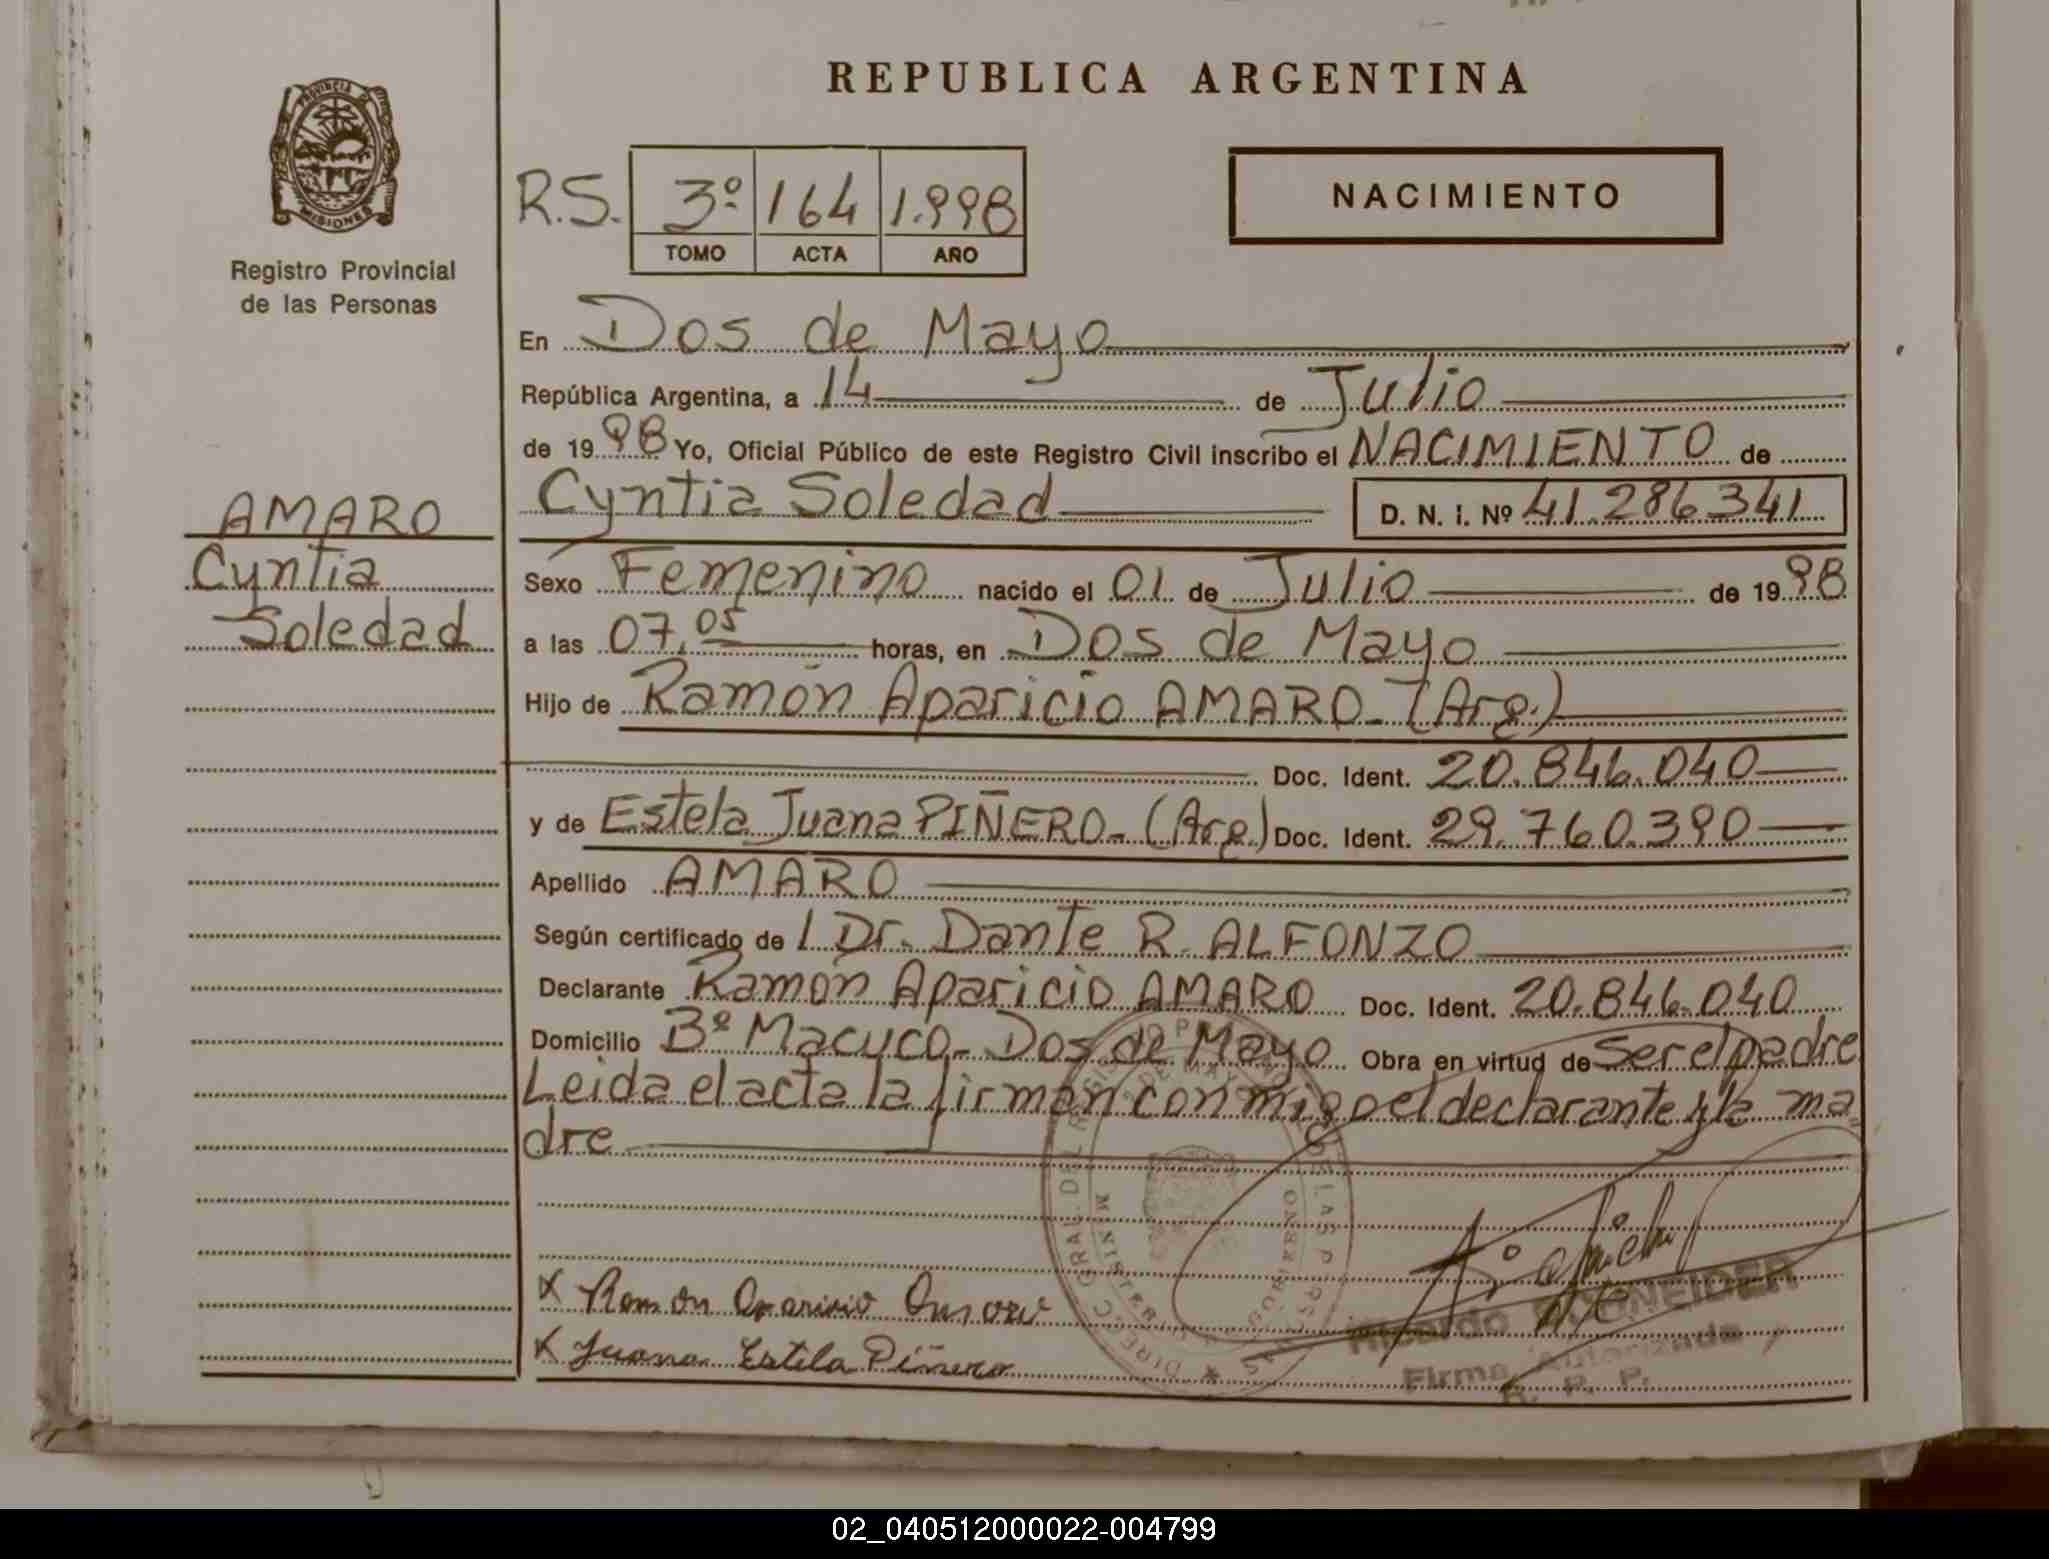 REPUBLICA ARGENTINA
PROVINCIA
MISIONES
Registro Provincial
de las Personas
R.S. 3º 164 1.998
TOMO ACTA AÑO
NACIMIENTO
En Dos de Mayo
República Argentina, a 14 de Julio
de 1998 Yo, Oficial Público de este Registro Civil inscribo el NACIMIENTO de
Cyntia Soledad D. N. I. Nº 41.286.341
AMARO
Cyntia
Soledad
Sexo Femenino nacido el 01 de Julio de 1998
a las 07,05 horas, en Dos de Mayo
Hijo de Ramón Aparicio AMARO- (Arg.)
Doc. Ident. 20.846.040
y de Estela Juana PIÑERO- (Arg.) Doc. Ident. 29.760.390
Apellido AMARO
Según certificado de / Dr. Dante R. ALFONZO
Declarante Ramón Aparicio AMARO Doc. Ident. 20.846.040
Domicilio Bº Macuco- Dos de Mayo Obra en virtud de ser el padre
Leida el acta la firman conmigo el declarante y la ma
dre
x Ramon Aparicio Amaro
x Juana Estela Piñero
Ricardo SCHNEIDER
Firma Autorizada
R. P. P.
02_040512000022-004799